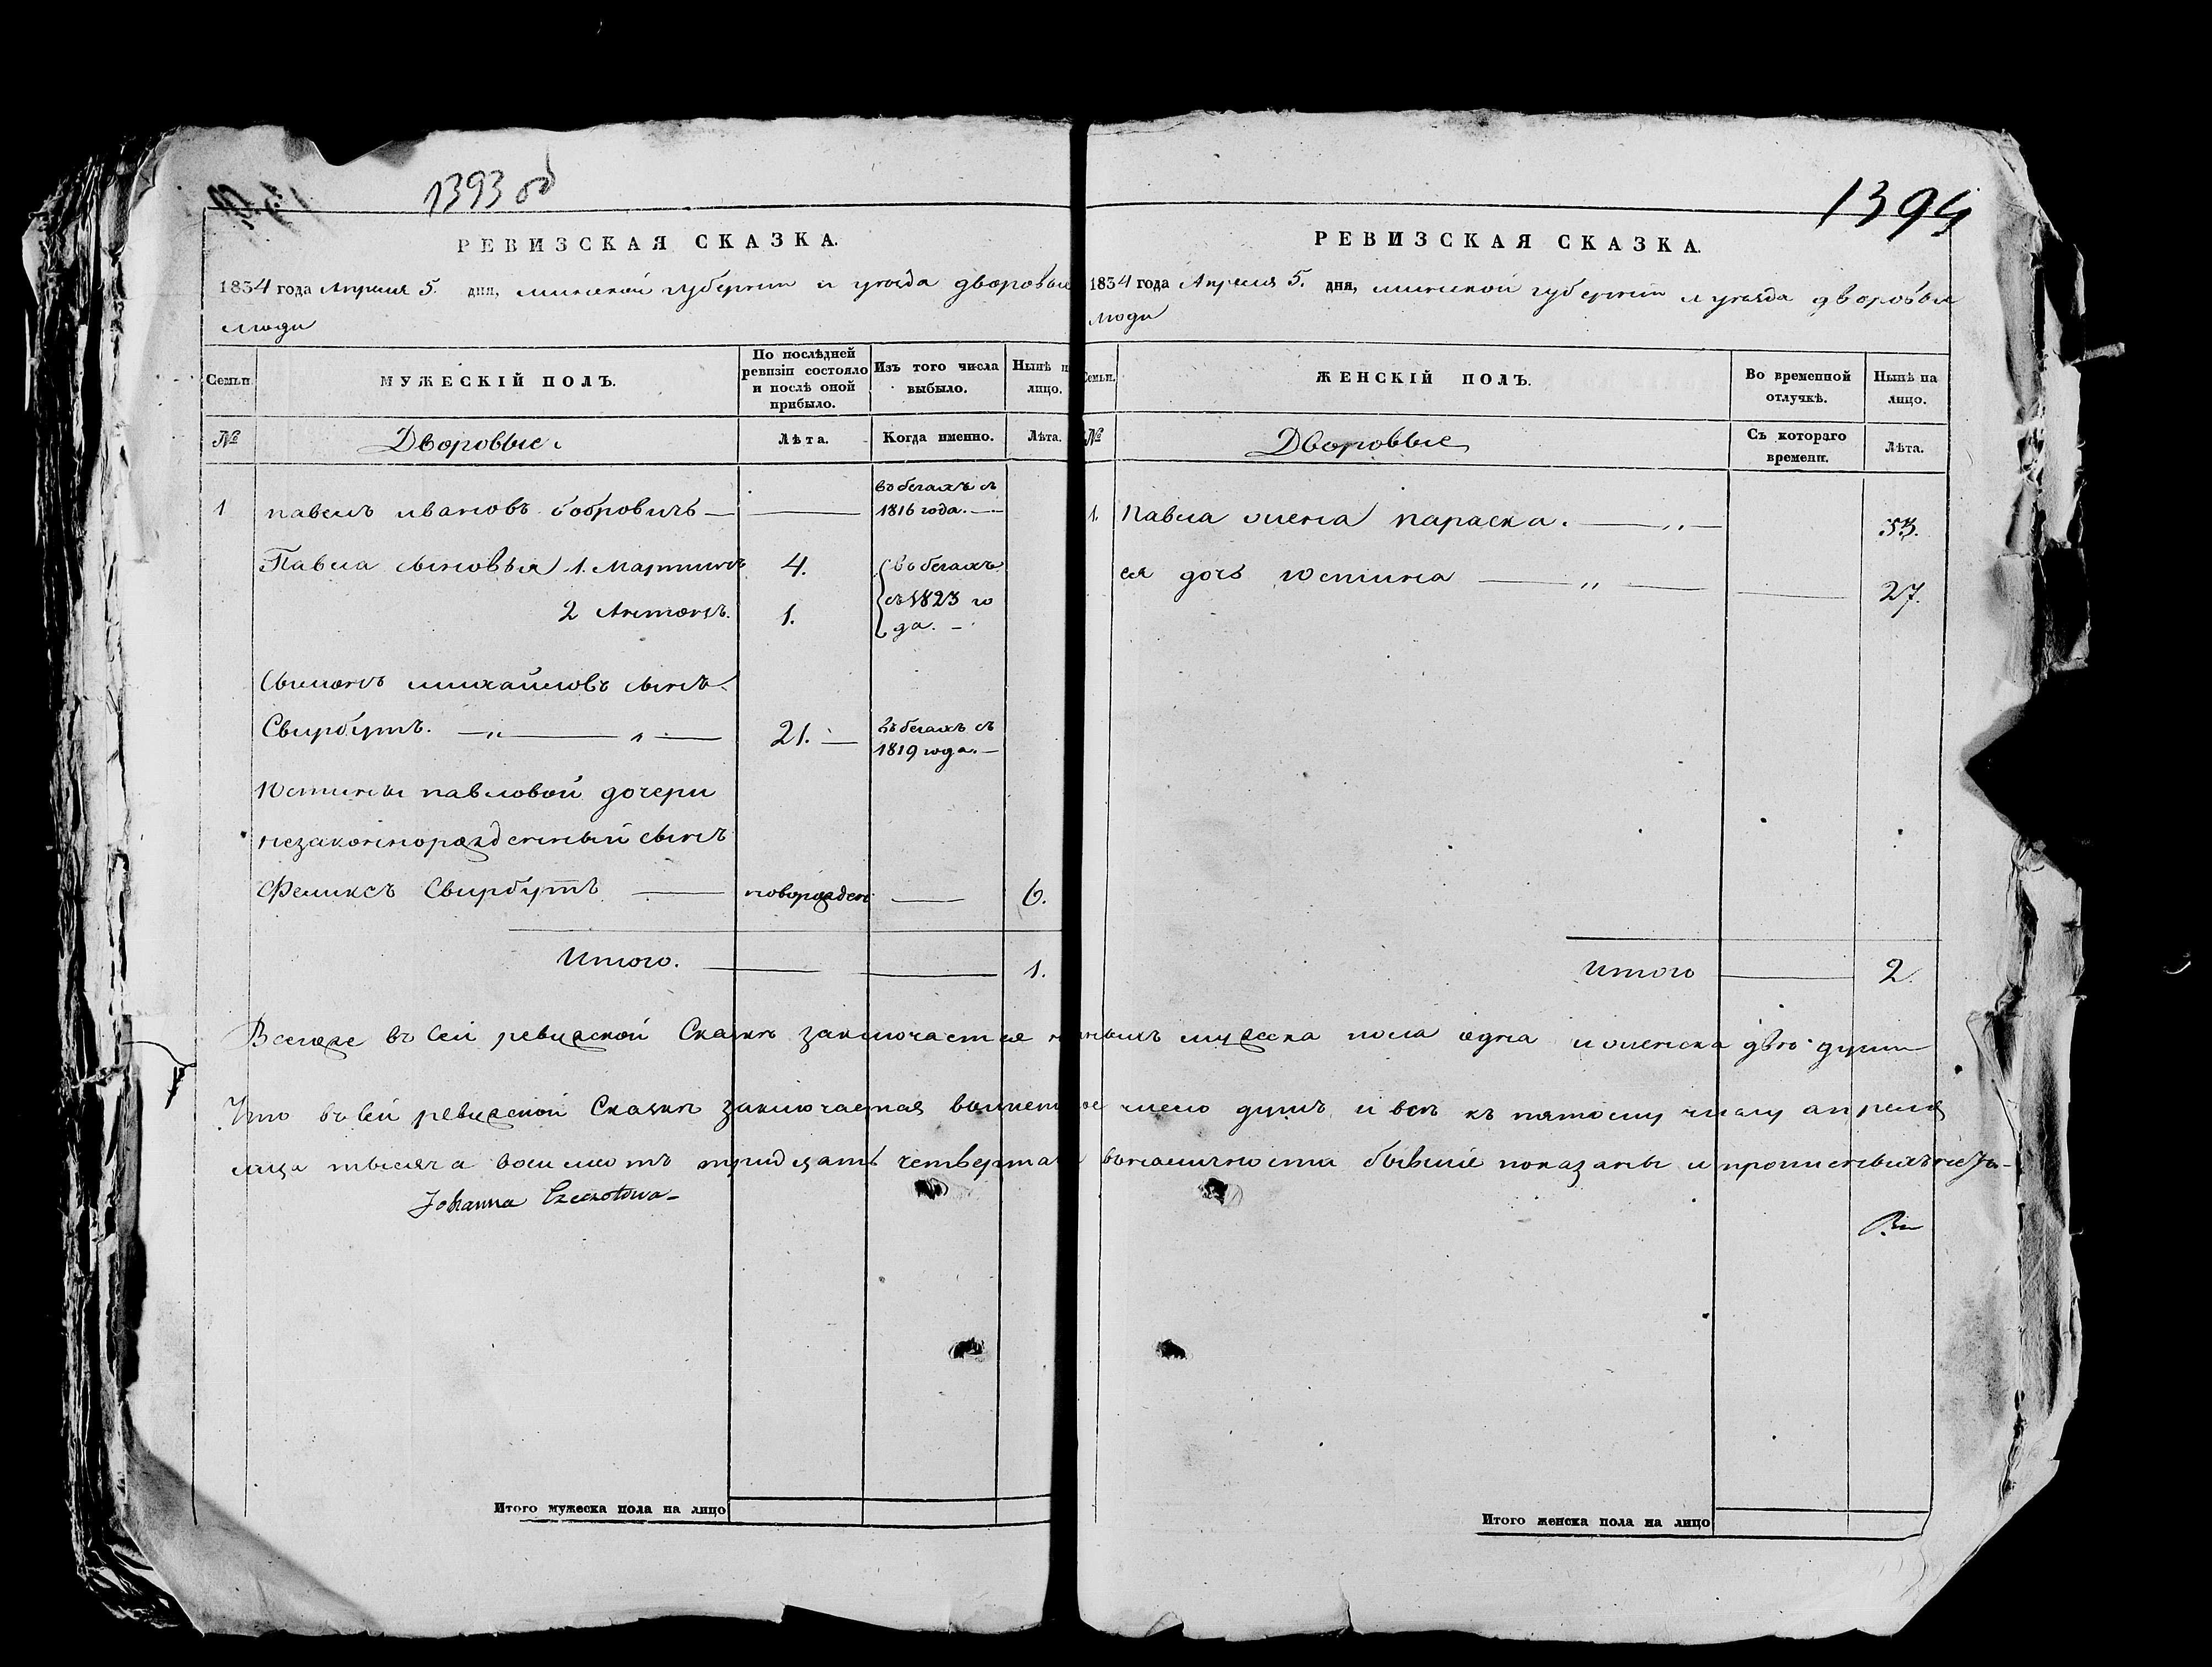 1393 об
РЕВИЗСКАЯ СКАЗКА.
1834 года Апреля 5. дня, минской губернии и уезда дворовыи
люди
Семьи.
МУЖЕСКІЙ ПОЛЪ.
По послѣдней ревизіи состояло и послѣ оной прибыло.
Изъ того числа выбыло.
Нынѣ н лицо.
№
Дворовые
Лѣта.
Когда именно.
Лѣта.
1 павелъ ивановъ бобровичъ — — въ бегахъ съ 1816 года. —
Павла сыновья 1. Мартинъ 4. въ бегахъ
2 Антонъ. 1. съ 1823 го
да. —
Сымонъ михайловъ сынъ
Свирбутъ. — „ — „ — 21. — въ бегахъ съ 1819 года. —
Юстины павловой дочери
незаконнорожденный сынъ
Феликсъ Свирбутъ — новорожден — 6.
Итого. — — 1.
1394
РЕВИЗСКАЯ СКАЗКА.
1834 года Апреля 5. дня, минской губернии и уезда дворовыи
люди
Семьи.
ЖЕНСКІЙ ПОЛЪ.
Во временной отлучкѣ.
Нынѣ на лицо.
№
Дворовые
Съ котораго времени.
Лѣта.
1. Павла жена параска. — „ — 53.
ея дочь юстина — „ — — 27.
Итого — 2.
Всего же въ сей ревизской Сказкѣ заключается мужеска пола одна и женска двѣ души
Что въ сей ревизской Сказкѣ заключается число душъ и всѣ къ пятому числу апреля
тысяча восимсотъ тридцать четвертаго бывшіе показаны и прописныхъ
Johanna Czeczotowa —
Итого мужеска пола на лицо
Итого женска пола на лицо